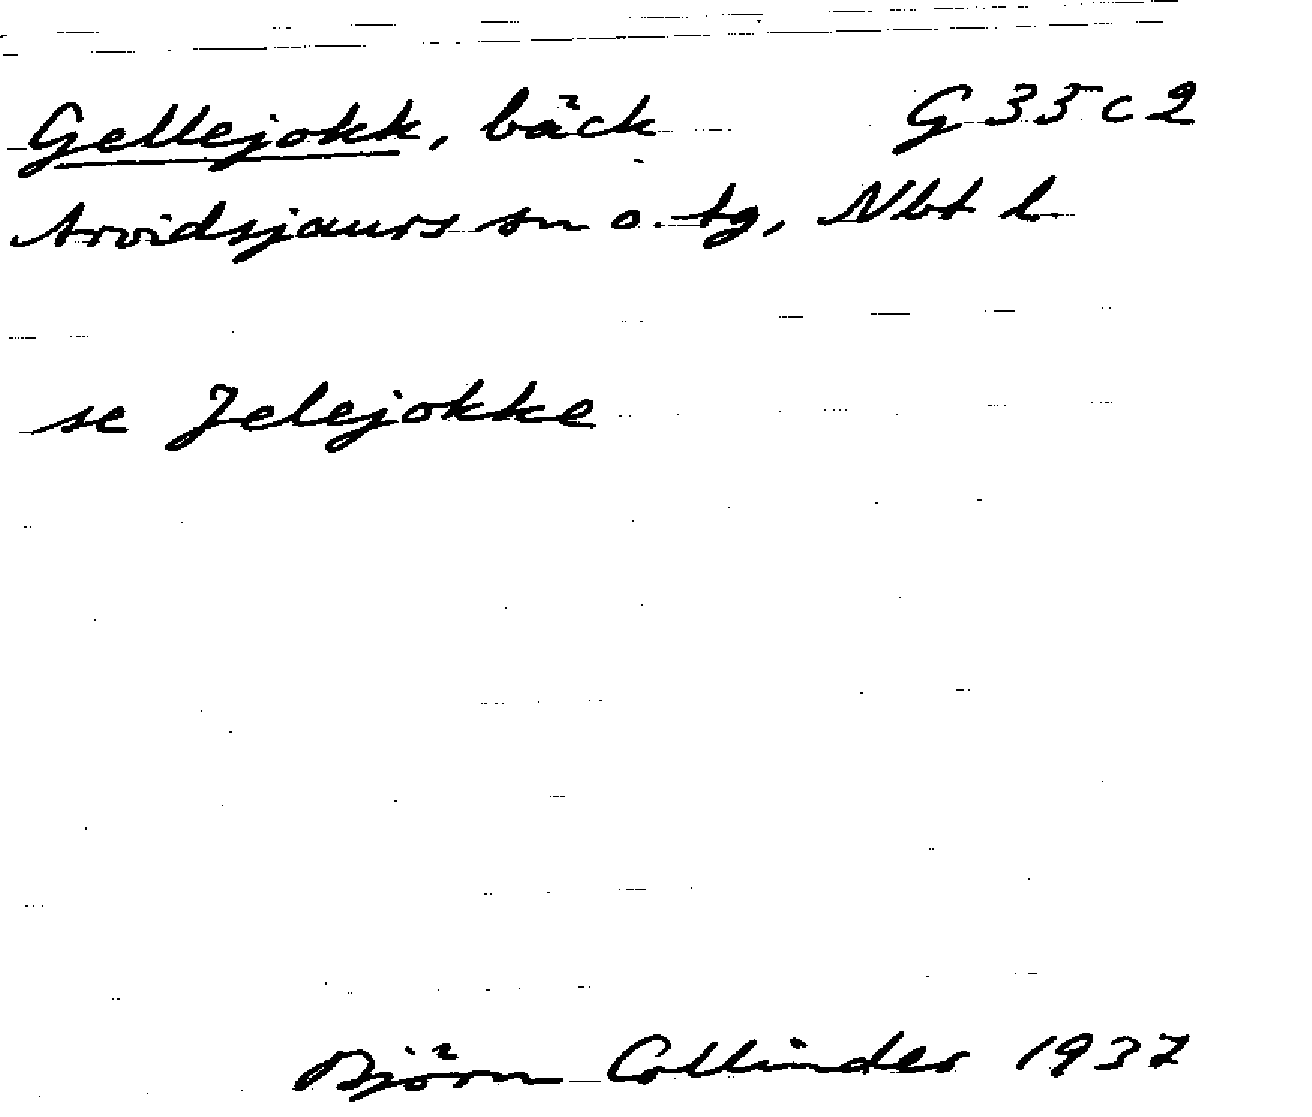 Gellejokk, bäck G 35 c 2
Arvidsjaurs sn o. tg, Nbt l
se Jelejokke
Björn Collinder 1937